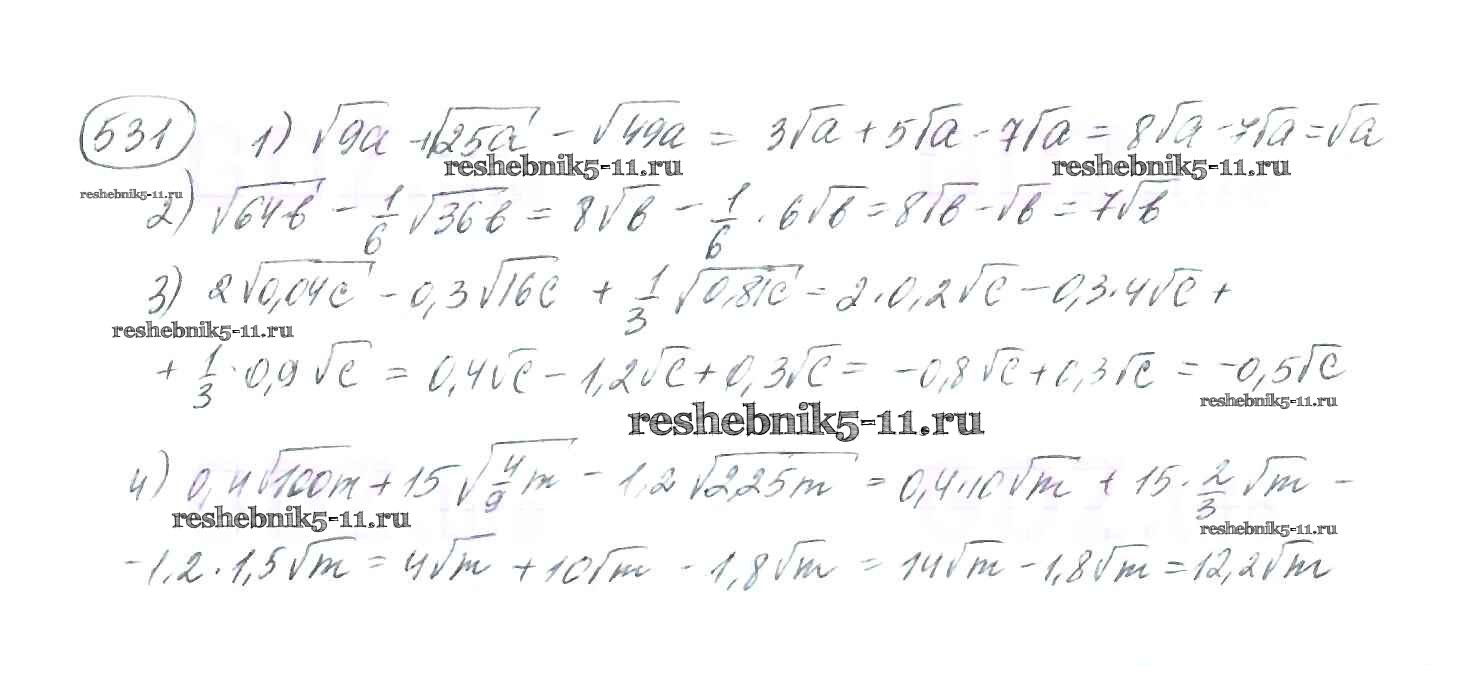 531 1) √9a + √25a - √49a = 3√a + 5√a - 7√a = 8√a - 7√a = √a
reshebnik5-11.ru reshebnik5-11.ru
reshebnik5-11.ru
2) √64в - 1/6 √36в = 8√в - 1/6 · 6√в = 8√в - √в = 7√в
3) 2√0,04c - 0,3√16c + 1/3 √0,81c = 2·0,2√c - 0,3·4√c +
reshebnik5-11.ru
+ 1/3 · 0,9√c = 0,4√c - 1,2√c + 0,3√c = -0,8√c + 0,3√c = -0,5√c
reshebnik5-11.ru
reshebnik5-11.ru
4) 0,4√100m + 15√4/9 m - 1,2√2,25m = 0,4·10√m + 15 · 2/3 √m -
reshebnik5-11.ru
reshebnik5-11.ru
- 1,2 · 1,5√m = 4√m + 10√m - 1,8√m = 14√m - 1,8√m = 12,2√m